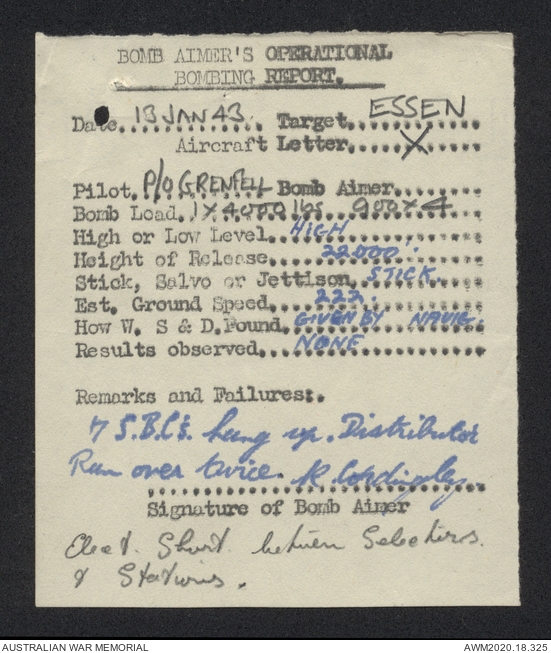 BOMB AIMER'S OPERATIONAL
BOMBING REPORT.
Date. 13 JAN 43. Target. ESSEN
Aircraft Letter. X
Pilot. P/O GRENFELL Bomb Aimer.
Bomb Load. 1 x 4000 lbs 900 x 4
High or Low Level. HIGH
Height of Release. 22000'.
Stick, Salvo or Jettison. STICK.
Est. Ground Speed. 222.
How W. S & D. Found. GIVEN BY NAVIG.
Results observed. NONE
Remarks and Failures:.
7 S.B.C's. hung up. Distributor
Run over twice. R Cordingley
Signature of Bomb Aimer
Elect. Short between Selectors.
& Stations.
AUSTRALIAN WAR MEMORIAL
AWM2020.18.325